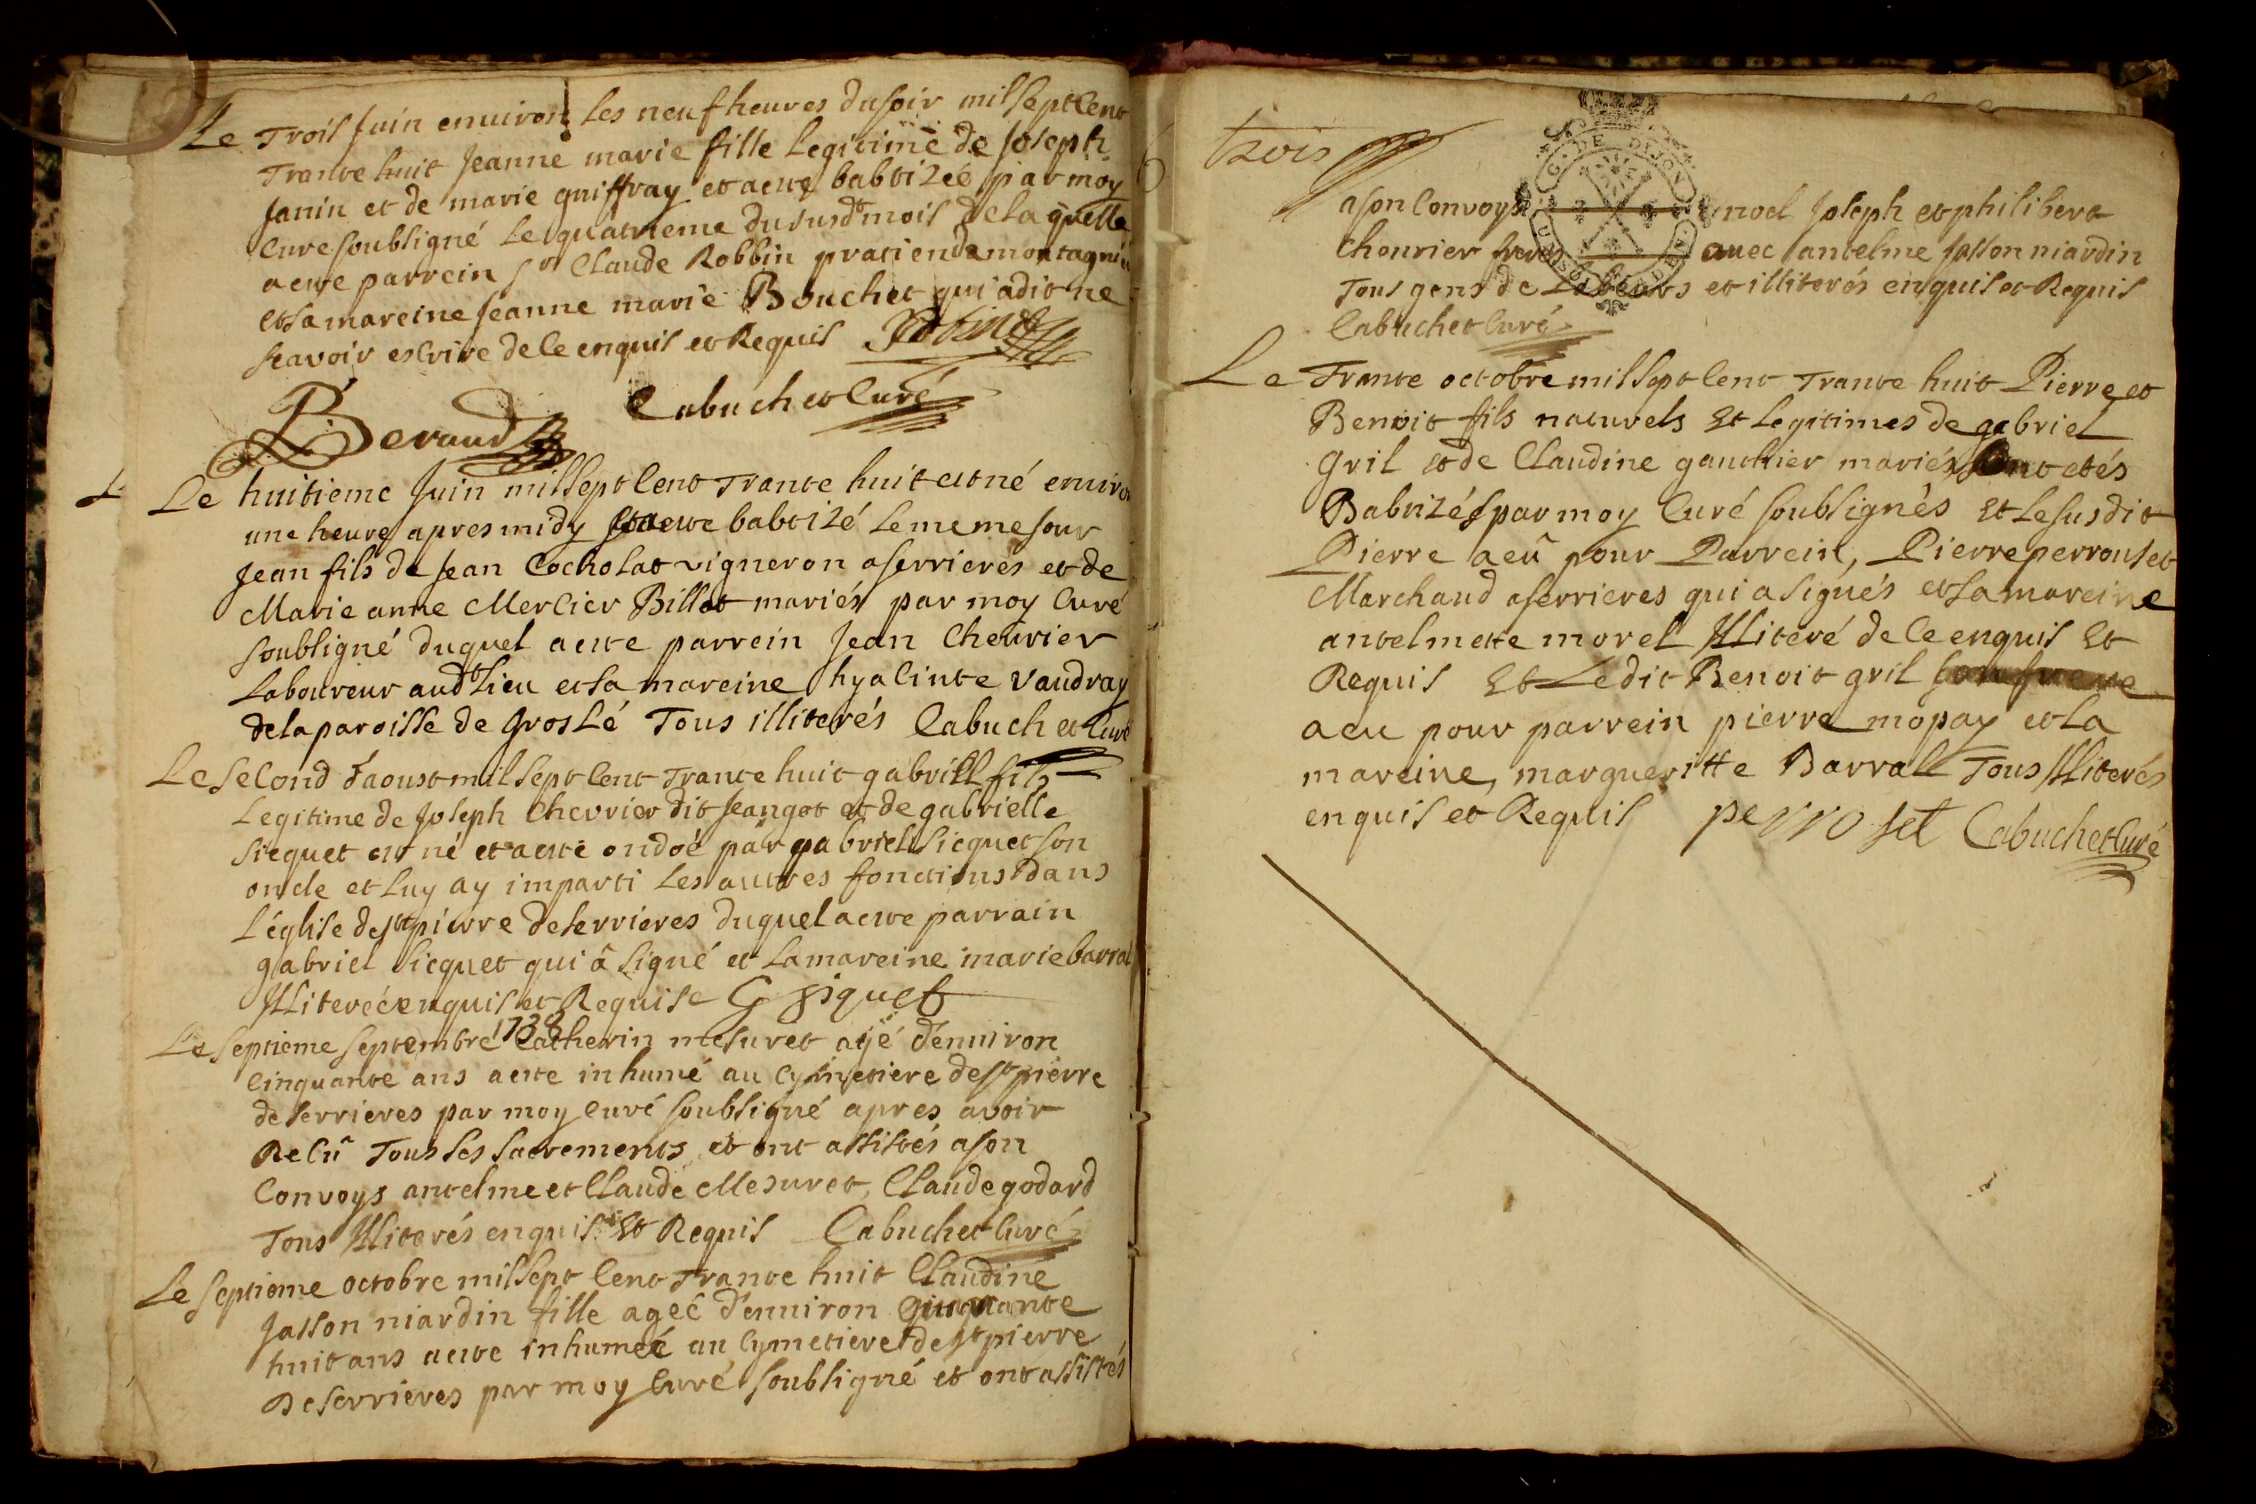 Le Troisl Juin environ les neuf heures du soir mil sept Cent
Trante huit Jeanne marie fille Legitime de Joseph
Janin et de marie guiffray et a este babtizeé par moy
Curé soubsigné Le quatrieme du susdt mois de la quelle
a este parrein sr Claude Robbin pratien de montagnieu
et sa mareine Jeanne marie Bouchet qui a dit ne
scavoir escrire de Ce enquis et Requis Robin
Cabuchet Curé
Beraud
Le huitieme Juin mil sept Cent Trante huit est né environ
une heure apres midy et a este babtizé Le meme Jour
Jean fils de Jean Cocholat vigneron a serrieres et de
Marie anne Mercier Billot mariés par moy Curé
soubsigné duquel a este parrein Jean Chevrier
Laboureur audt Lieu et sa mareine hyacinte vaudray
de la paroisse de Groslé Tous illiterés Cabuchet Curé
Le second d'aoust mil sept Cent Trante huit gabriel fils
Legitime de Joseph Chevrier dit Jeangot et de gabrielle
sicquet est né et a esté ondoé par gabriel sicquet son
oncle et Luy ay imparti Les autres fonctions dans
L'église de st pierre de serrieres duquel a este parrain
gabriel sicquet qui a signé et La mareine marie barral
Illitereé enquis et Requise G siquet
1738
Le septieme septembre Catherin mesuret agé d'environ
Cinquante ans a este inhumé au Cymetiere de st pierre
de serrieres par moy Curé soubsigné apres avoir
Reçû Tous Ses sacrements et ont assistés a son
Convoys antelme et Claude Mesuret, Claude godard
Tous Illiterés enquis Et Requis Cabuchet Curé
Le septieme octobre mil sept Cent Trante huit Claudine
Jasson niardin fille ageé d'environ Cinquante
huit ans a este inhumeé au Cymetiere de st pierre
De serrieres par moy Curé soubsigné et ont assistés
trois
G. DE DIJON
a son Convoys noel Joseph et philibert
Chevrier freres avec antelme Jasson niardin
Tous gens de Labeurs et illiterés enquis et Requis
Cabuchet Curé
Le Trante octobre mil sept Cent Trante huit Pierre et
Benoit fils naturels Et Legitimes de gabriel
Gril et de Claudine gauthier mariés ont etés
Babtizés par moy Curé soubsignés Et Le susdit
Pierre a eû pour Parrein, Pierre perrouset
Marchand a serrieres qui a signés et sa mareine
antelmette morel Illiteré de Ce enquis Et
Requis Et Ledit Benoit gril son frere
a eu pour parrein pierre mopay et La
mareine, margueritte Barral Tous Illiterés
enquis et Requis perroset Cabuchet Curé